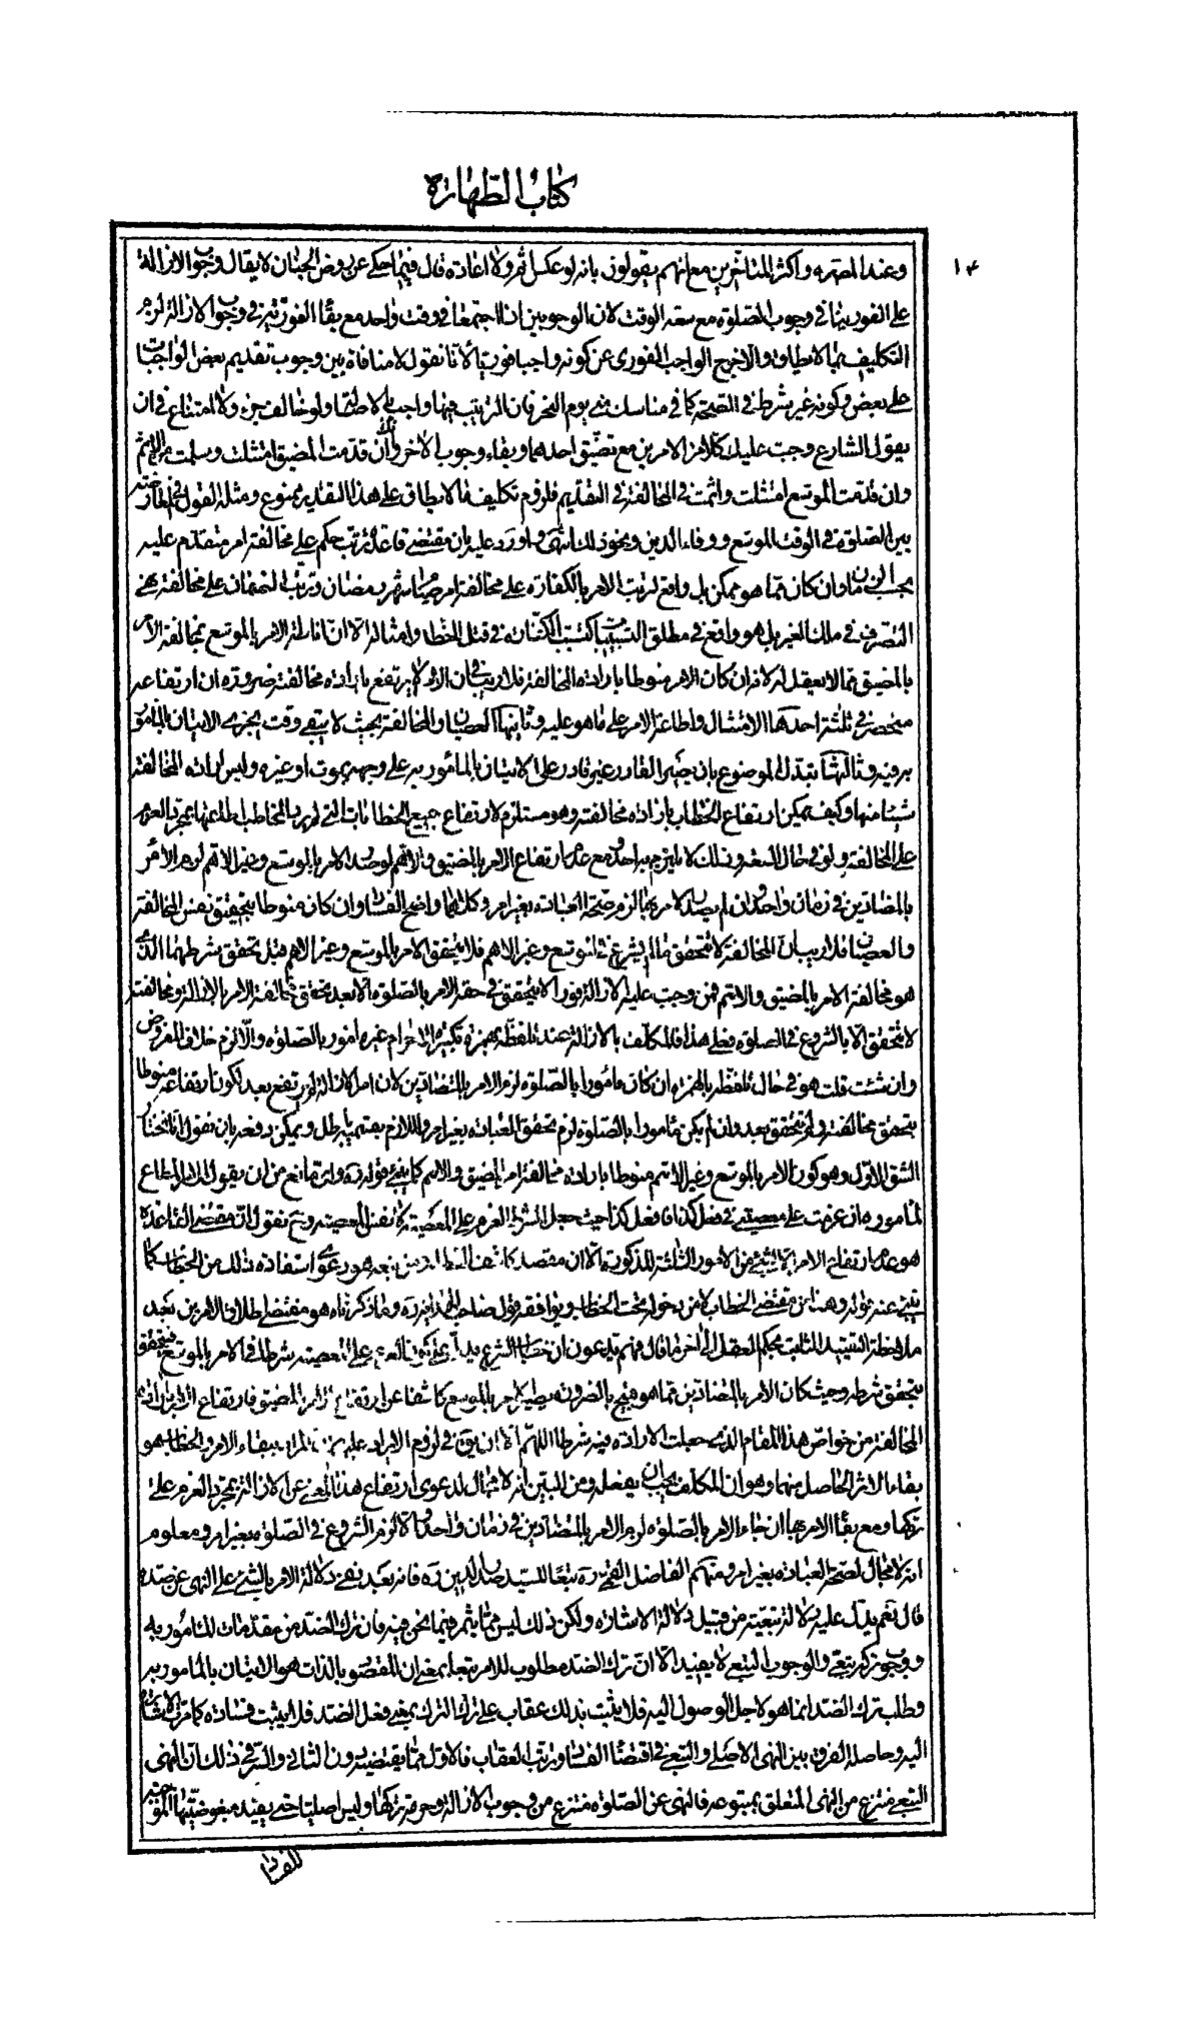 كتاب الطهارة
١٤
وعند المصنف ره وأكثر المتأخرين مع انهم يقولون بانه لو عكس اثم ولا اعادة قال فيما حكى عن روض الجنان لا يقال وجوب الازالة
على الفور ينافي وجوب الصلوة مع سعة الوقت لان الوجوبين اذا اجتمعا في وقت واحد مع بقاء الفورية في وجوب الازالة لزم
التكليف بما لا يطاق والا خرج الواجب الفورى عن كونه واجبا فوريا لأنا نقول لا منافاة بين وجوب تقديم بعض الواجبات
على بعض وكونه غير شرط في الصحة كما في مناسك منى يوم النحر فان الترتيب فيها واجب ولو خالف اجزء ولا امتناع في ان
يقول الشارع وجبت عليك كلا من الامرين مع تضيق احدهما وبقاء وجوب الاخر وانك ان قدمت المضيق امتثلت وسلمت من الاثم
وان قدمت الموسع امتثلت واثمت في المخالفة في التقديم فلزوم تكليف ما لا يطاق على هذا التقدير ممنوع ومثله القول في المعارضة
بين الصلوة في الوقت الموسع ووفاء الدين ونحو ذلك انتهى واورد عليه بان مقتضى قاعدة ترتب حكم على مخالفة امر متقدم عليه
بحسب الزمان وان كان مما هو ممكن بل واقع لترتب الامر بالكفارة على مخالفة امر صيام شهر رمضان وترتب الضمان على مخالفة نهى
التصرف في ملك الغير بل هو واقع في مطلق التسبيبات كتسبب الكفارة في قتل الخطاء وامثاله الا ان اناطة الامر بالموسع بمخالفة الامر
بالمضيق مما لا يعقل له لانه ان كان الامر منوطا بارادة المخالفة فلا ريب في ان الامر لا يرتفع بارادة مخالفته ضرورة ان ارتفاعه
منحصر في ثلثة احدها الامتثال واطاعة الامر على ما هو عليه وثانيها العصيان والمخالفة بحيث لا يبقى وقت يجزى الاتيان بالمأمور
به فيه وثالثها تبدل الموضوع بان يصير القادر غير قادر على الاتيان بالمأمور به على وجهه بموت او غيره وليس ارادة المخالفة
شيئا منها وكيف يمكن ارتفاع الخطاب بارادة مخالفته وهو مستلزم لارتفاع جميع الخطابات التي لم يرد المخاطب اطاعتها بمجرد العزم
على المخالفة ولو في حال السعة وذلك لا يلتزم به احد ومع عدم ارتفاع الامر بالمضيق والاهم لو صدر الامر بالموسع وغير الاهم لزم الامر
بالمتضادين في زمان واحد وان لم يصدر الامر بهما لزم صحة العبادة بغير امر وكلاهما واضح الفساد وان كان منوطا بتحقق نفس المخالفة
والعصيان فلا ريب ان المخالفة لا تتحقق ما لم يشرع في الموسع وغير الاهم فلا يتحقق الامر بالموسع وغير الاهم قبل تحقق شرطهما الذى
هو مخالفة الامر بالمضيق والاهم فمن وجبت عليه الازالة فورا لا يتحقق في حقه الامر بالصلوة الا بعد تحقق مخالفة الامر بالازالة ومخالفته
لا تتحقق الا بالشروع في الصلوة فعلى هذا فالمكلف بالازالة عند تلفظه بهمزة تكبيرة الاحرام غير مأمور بالصلوة والا لزم خلاف المفروض
وان شئت قلت هو في حال تلفظه بالهمزة ان كان مأمورا بالصلوة لزم الامر بالمتضادين لان امر الازالة لم يرتفع بعد لكون ارتفاعه منوطا
بتحقق مخالفته ولم يتحقق بعد وان لم يكن مأمورا بالصلوة لزم تحقق العبادة بغير امر واللازم بقسميه باطل ويمكن دفعه بان نقول انا نختار
الشق الاول وهو كون الامر بالموسع وغير الاهم منوطا بارادة مخالفة امر المضيق والاهم كما ينبئ قوله ره واى مانع من ان يقول الامر المطاع
لمأموره ان عزمت على معصيتى في فعل كذا فافعل كذا حيث جعل الشرط العزم على المعصية لا نفس المعصية ثم نقول ان مقتضى القاعدة
هو عدم ارتفاع الامر الا بشيء من الامور الثلثة المذكورة الا ان مقصد كاشف الغطاء ومن تبعه هو دعوى استفادة ذلك من الخطاب كما
ينبئ عنه قوله وهذا من مقتضى الخطاب لا من دخوله تحت الخطاب ويوافقه قول صاحب الهداية ره وما ذكرناه هو مقتضى اطلاق الامرين بعد
ملاحظة التقييد الثابت بحكم العقل الى اخر ما قال فهم يدعون ان خطاب الشرع يدل على كون العزم على المعصية شرطا في الامر بالموسع فيتحقق
بتحقق شرطه وحيث كان الامر بالمتضادين مما هو قبيح بالضرورة يصير الامر بالموسع كاشفا عن ارتفاع الامر المضيق فارتفاع الامر بارادة
المخالفة من خواص هذا المقام الذى جعلت الارادة فيه شرطا اللهم الا ان يق في لزوم الايراد عليهم ان المراد ببقاء الامر والخطاب هو
بقاء الاثر الحاصل منهما وهو ان المكلف يجب ان يفعله ومن البين انه لا مجال لدعوى ارتفاع هذا المعنى عن الازالة بمجرد العزم على
تركها ومع بقاء الامر بها ان جاء الامر بالصلوة لزم الامر بالمتضادين في زمان واحد والا لزم الشروع في الصلوة بغير امر ومعلوم
انه لا مجال لصحة العبادة بغير امر ومنهم الفاضل القمى ره تبعا للسيد صدر الدين ره فانه بعد نفى دلالة الامر بالشيء على النهى عن ضده
قال نعم يدل عليه دلالة تبعية من قبيل دلالة الاشارة ولكن ذلك ليس مما يثمر فيما نحن فيه فان ترك الضد من مقدمات المأمور به
ووجوب تركه تبعى والوجوب التبعى لا يفيد الا ان ترك الضد مطلوب للامر تبعا بمعنى ان المقصود بالذات هو الاتيان بالمأمور به
وطلب ترك الضد انما هو لاجل الوصول اليه فلا يثبت بذلك عقاب على ترك الترك بمعنى فعل الضد فلا يثبت فساده كما مرت الاشارة
اليه وحاصله الفرق بين النهى الاصلى والتبعى في اقتضاء الفساد وترتب العقاب فالاول مما يقتضيه دون الثاني والسر في ذلك ان النهى
التبعى منتزع من النهى المتعلق بمتبوعه فالنهى عن الصلوة منتزع من وجوب الازالة وحرمة تركها وليس اصليا حتى يفيد مبغوضيتها الموجبة
للفساد